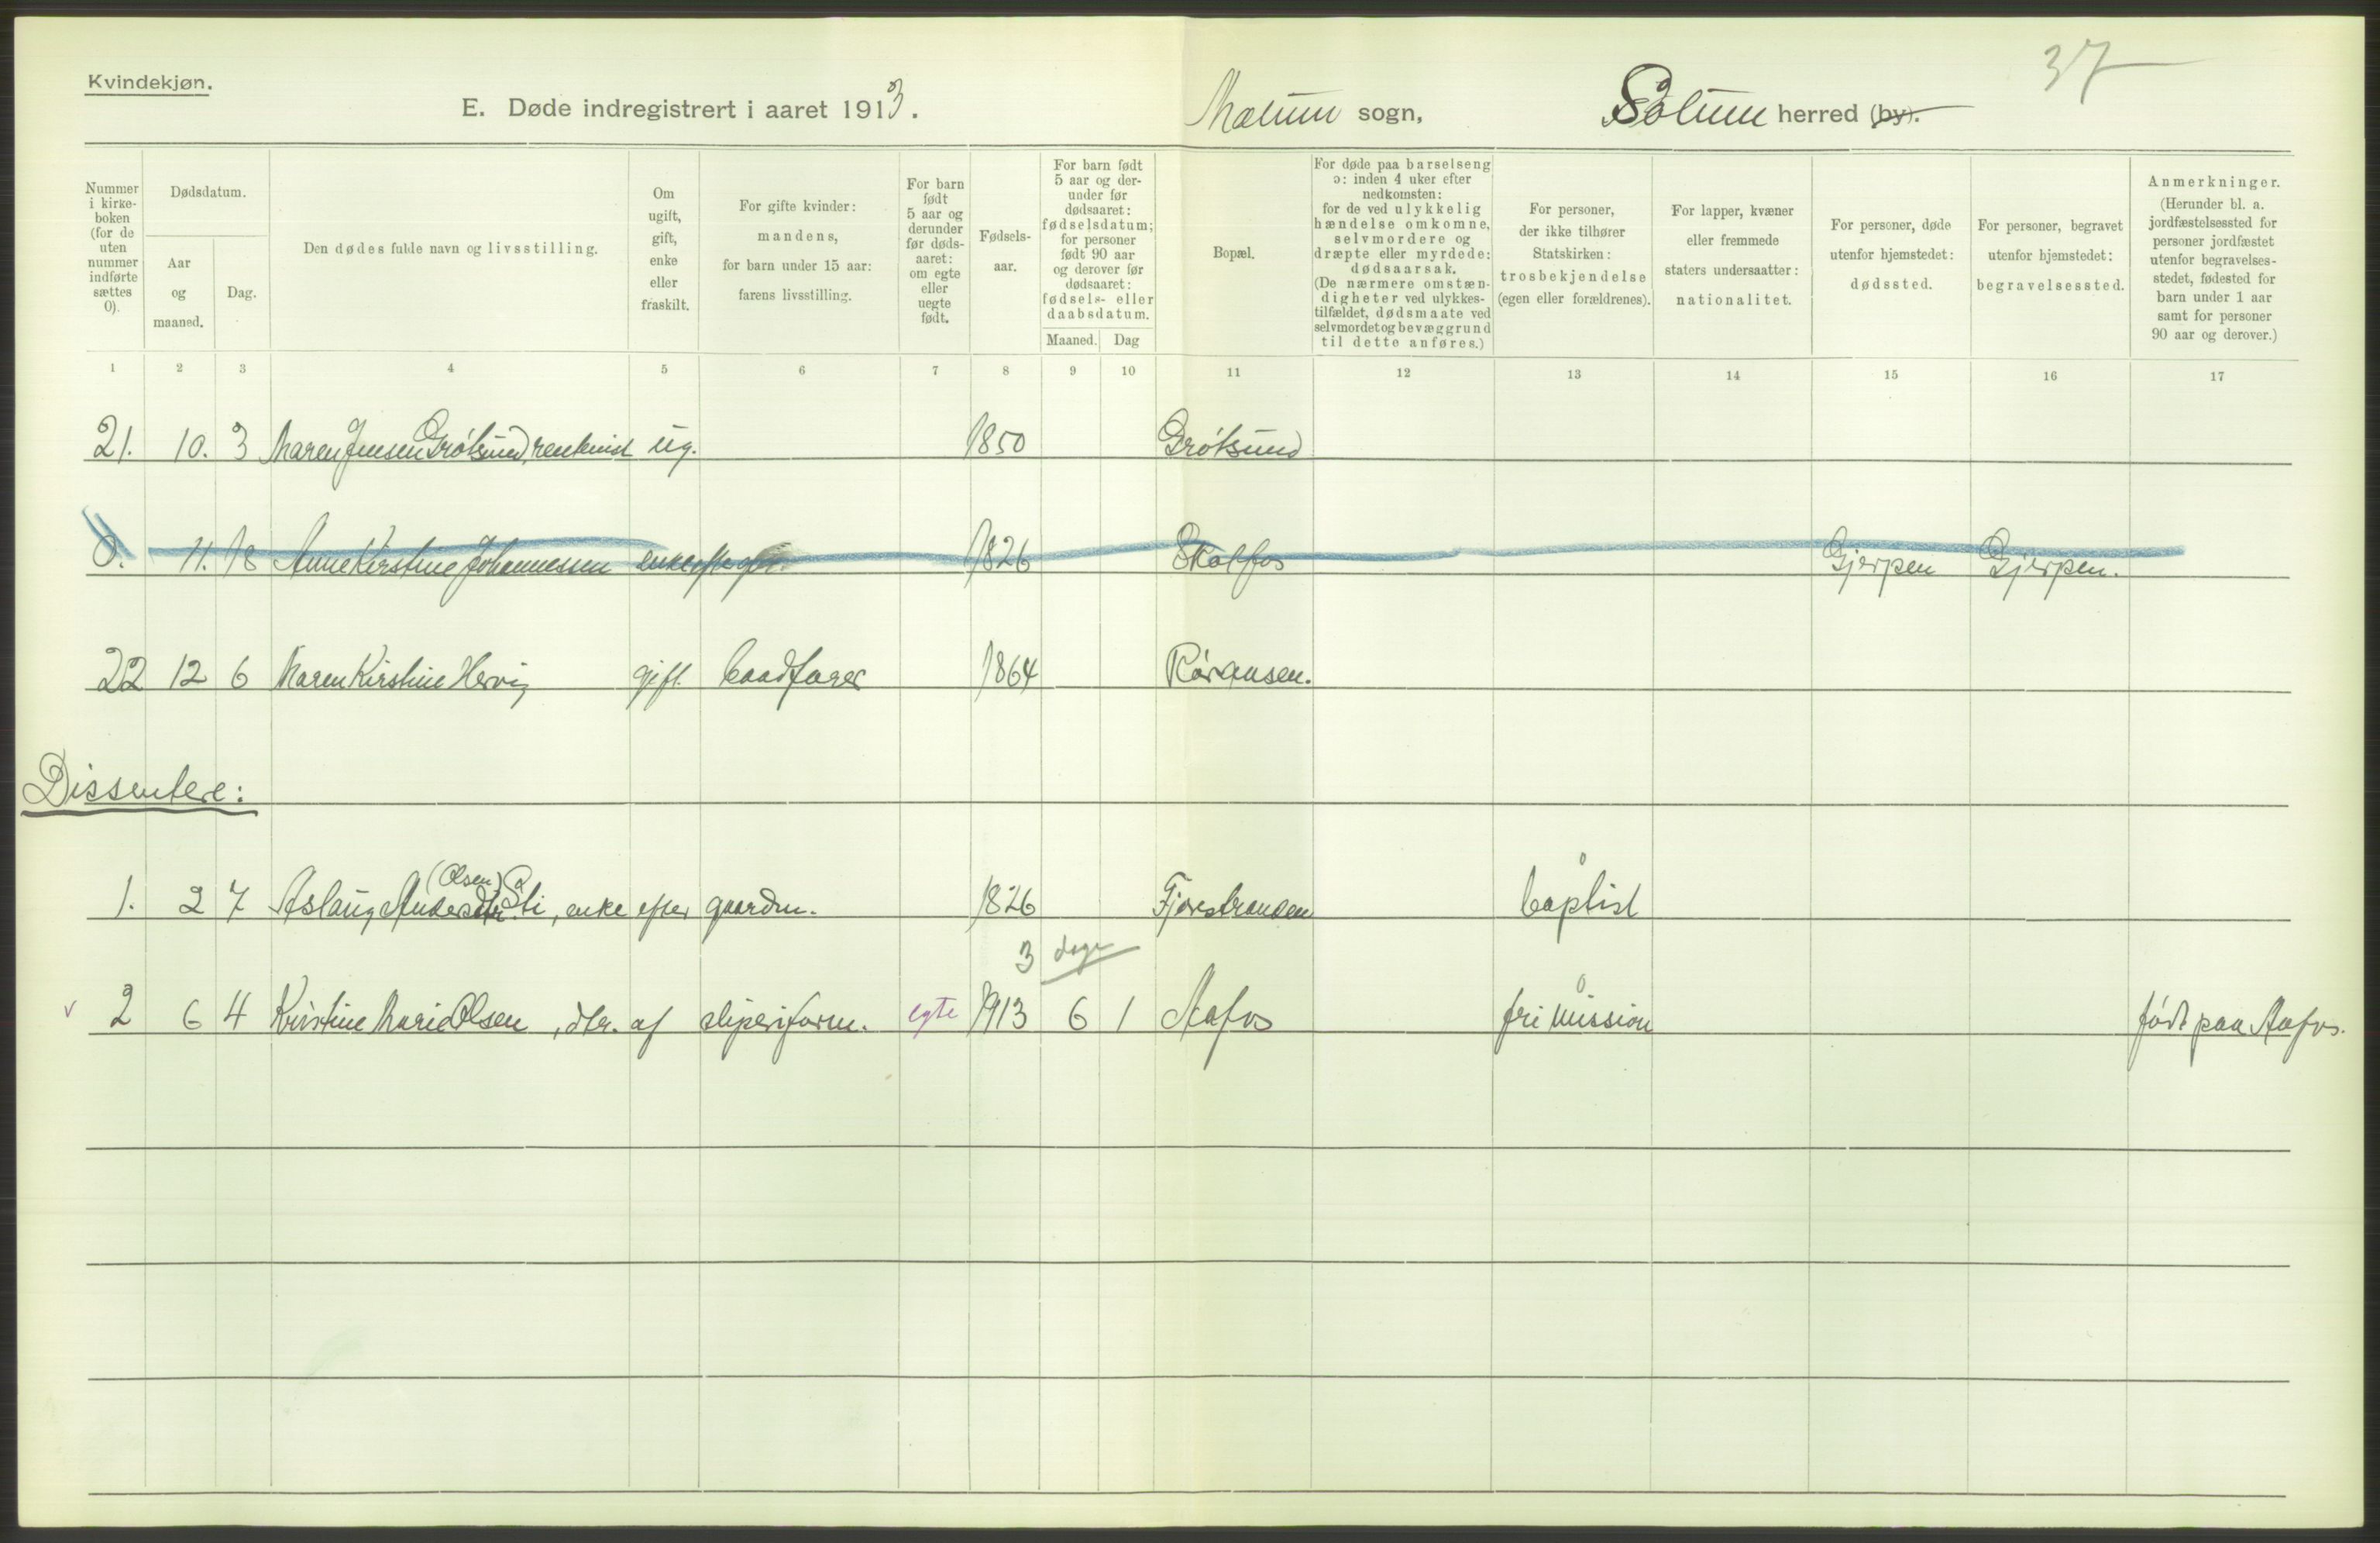 37
Kvindekjøn.
E. Døde indregistrert i aaret 1913.
Mælum sogn, Solum herred (by).
Nummer i kirkeboken (for de uten nummer indførte sættes 0).
Dødsdatum.
Aar og maaned.
Dag.
Den dødes fulde navn og livsstilling.
Om ugift, gift, enke eller fraskilt.
For gifte kvinder: mandens, for barn under 15 aar: farens livsstilling.
For barn født 5 aar og derunder før dødsaaret: om egte eller uegte født.
Fødselsaar.
For barn født 5 aar og derunder før dødsaaret: fødselsdatum; for personer født 90 aar og derover før dødsaaret: fødsels- eller daabsdatum.
Maaned. Dag
Bopæl.
For døde paa barselseng ɔ: inden 4 uker efter nedkomsten: for de ved ulykkelig hændelse omkomne, selvmordere og dræpte eller myrdede: dødsaarsak. (De nærmere omstændigheter ved ulykkestilfældet, dødsmaate ved selvmordet og bevæggrund til dette anføres.)
For personer, der ikke tilhører Statskirken: trosbekjendelse (egen eller forældrenes).
For lapper, kvæner eller fremmede staters undersaatter: nationalitet.
For personer, døde utenfor hjemstedet: dødssted.
For personer, begravet utenfor hjemstedet: begravelsessted.
Anmerkninger. (Herunder bl. a. jordfæstelsessted for personer jordfæstet utenfor begravelsesstedet, fødested for barn under 1 aar samt for personer 90 aar og derover.)
1 2 3 4 5 6 7 8 9 10 11 12 13 14 15 16 17
21. 10. 3 Maren Jensen Grótsund, ug. 1850 Grótsund
0. 11. 18 Anne Kirstine Johannessen enke efter 1826 Skotfos Gjerpen Gjerpen.
22 12 6 Maren Kirstine Hervig gift baadfører 1864 Róraasen.
Dissentere:
(Olsen)
1. 2 7 Aslaug Andersdtr. Sti, enke efter gaardm. 1826 Fjærestranden baptist 0
3 dage
v 2 6 4 Kirstine Marie Olsen, dtr. af sliperiform. egte 1913 6 1 Aafos fri mission 0 født paa Aafos.